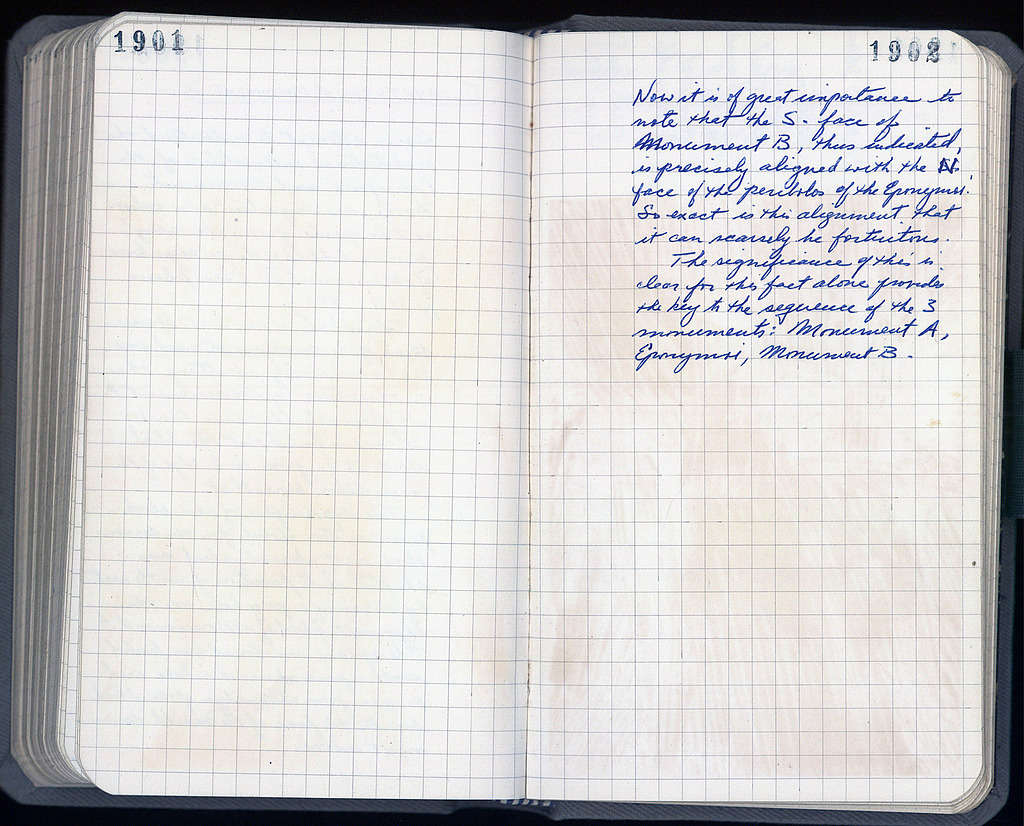 1901
1902
Now it is of great importance to
note that the S. face of
Monument B, thus indicated,
is precisely aligned with the N.
face of the peribolos of the Eponymoi.
So exact is this alignment that
it can scarsely be fortuitous.
The significance of this is
clear for this fact alone provides
the key to the sequence of the 3
monuments: Monument A,
Eponymoi, Monument B.